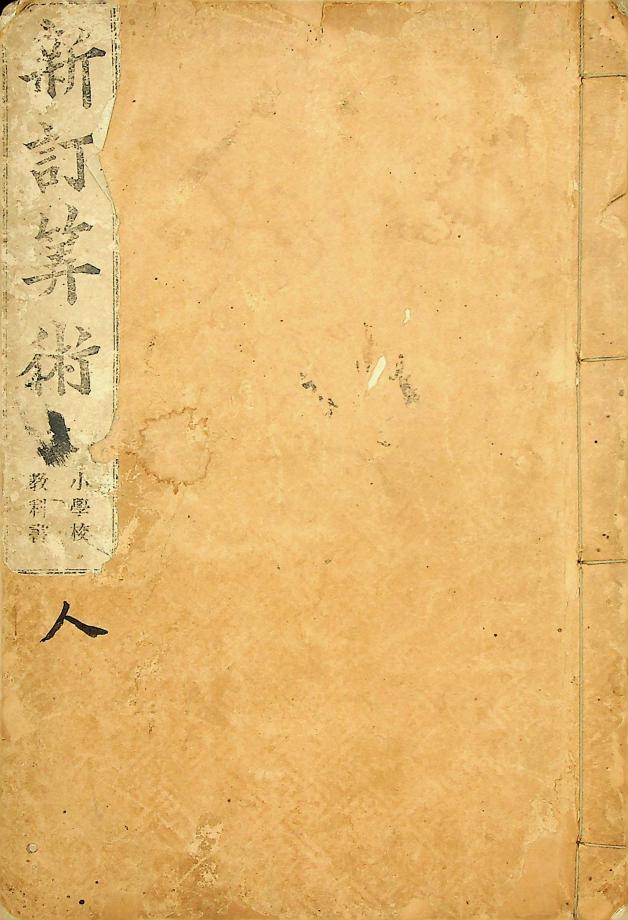 新訂筭術
小學校
教科書
人